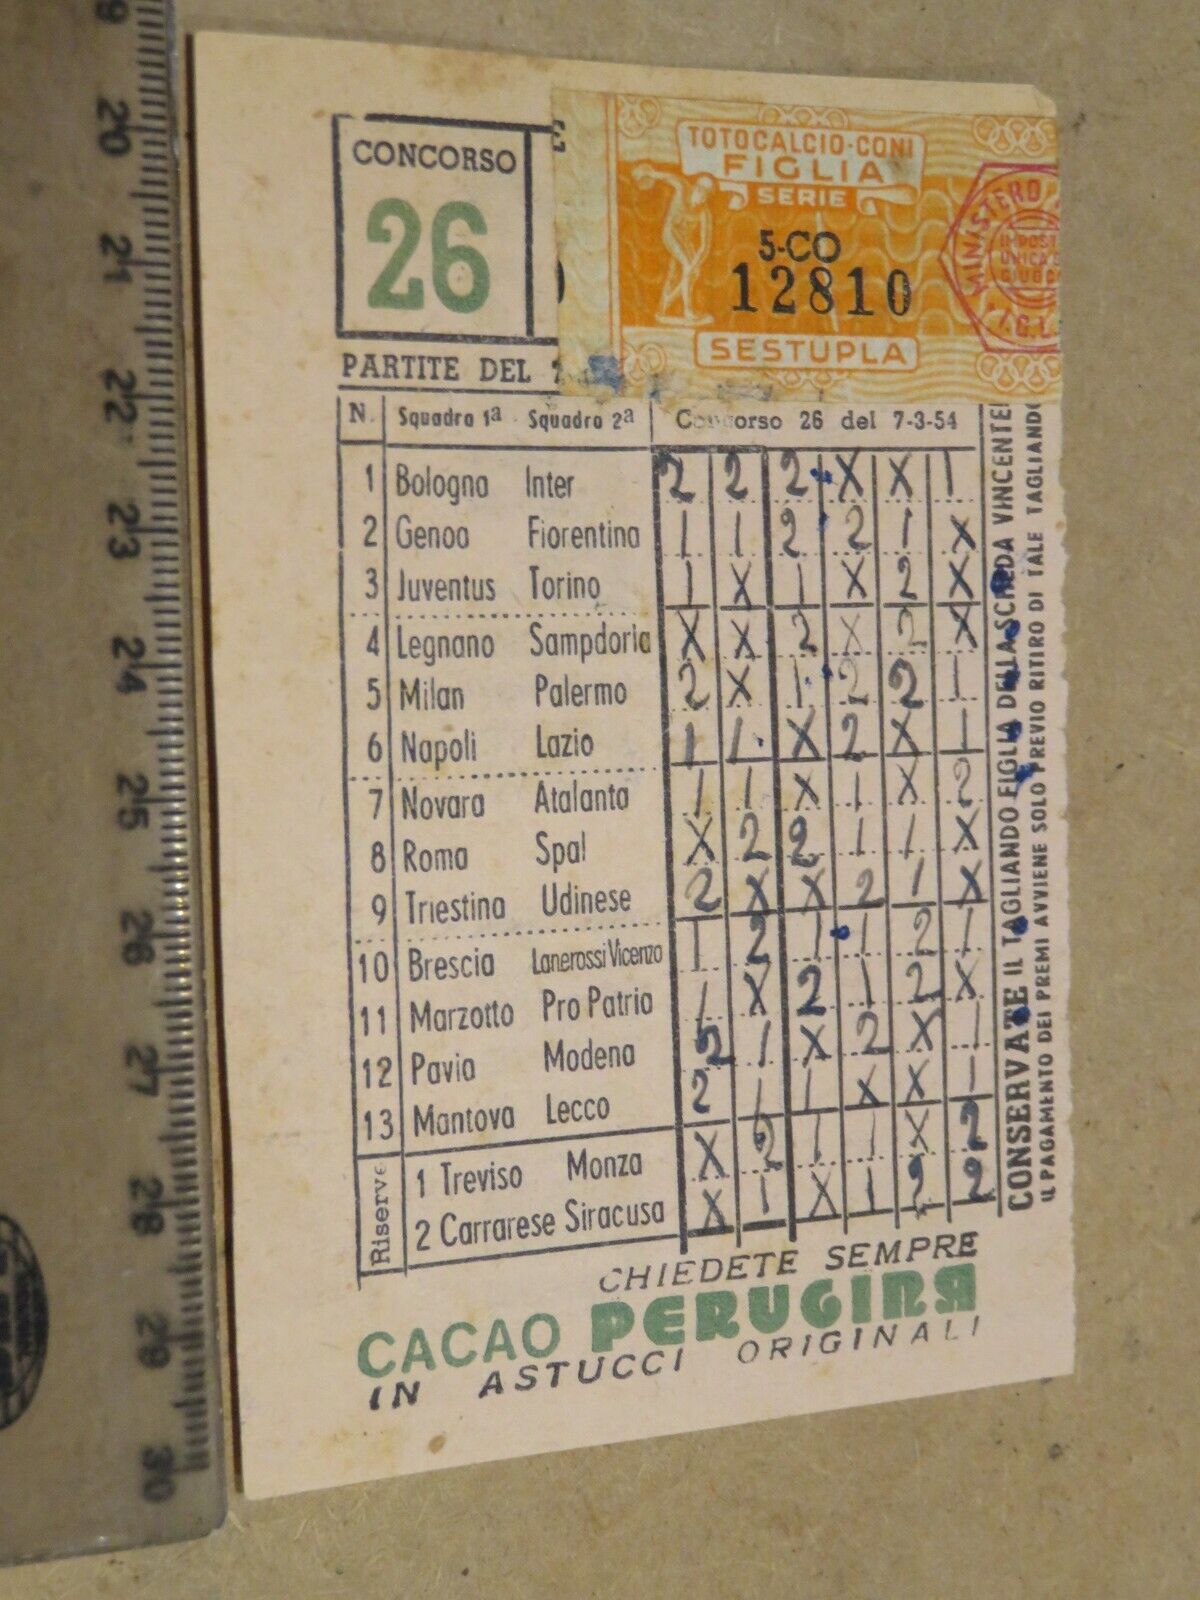 CONCORSO
26
TOTOCALCIO-CONI
FIGLIA
SERIE
5-CO
12810
SESTUPLA
MINISTERO
UNICA
I.G.E.
PARTITE DEL
N. Squadra 1ª - Squadra 2ª Concorso 26 del 7-3-54
1 Bologna Inter 2 2 2 X X 1
2 Genoa Fiorentina 1 1 2 2 1 X
3 Juventus Torino 1 X 1 X 2 X
4 Legnano Sampdoria X X 2 X 2 X
5 Milan Palermo 2 X 1 2 2 1
6 Napoli Lazio 1 1 X 2 X 1
7 Novara Atalanta 1 1 X 1 X 2
8 Roma Spal X 2 2 1 1 X
9 Triestina Udinese 2 X X 2 1 X
10 Brescia Lanerossi Vicenza 1 2 1 1 2 1
11 Marzotto Pro Patria 1 X 2 1 2 X
12 Pavia Modena 2 1 X 2 X 1
13 Mantova Lecco 2 1 1 X X 1
Riserve
1 Treviso Monza X 2 1 1 X 2
2 Carrarese Siracusa X 1 X 1 2 2
CONSERVATE IL TAGLIANDO FIGLIA DELLA SCHEDA VINCENTE
IL PAGAMENTO DEI PREMI AVVIENE SOLO PREVIO RITIRO DI TALE TAGLIANDO
CHIEDETE SEMPRE
CACAO PERUGINA
IN ASTUCCI ORIGINALI
20
21
22
23
24
25
26
27
28
29
30